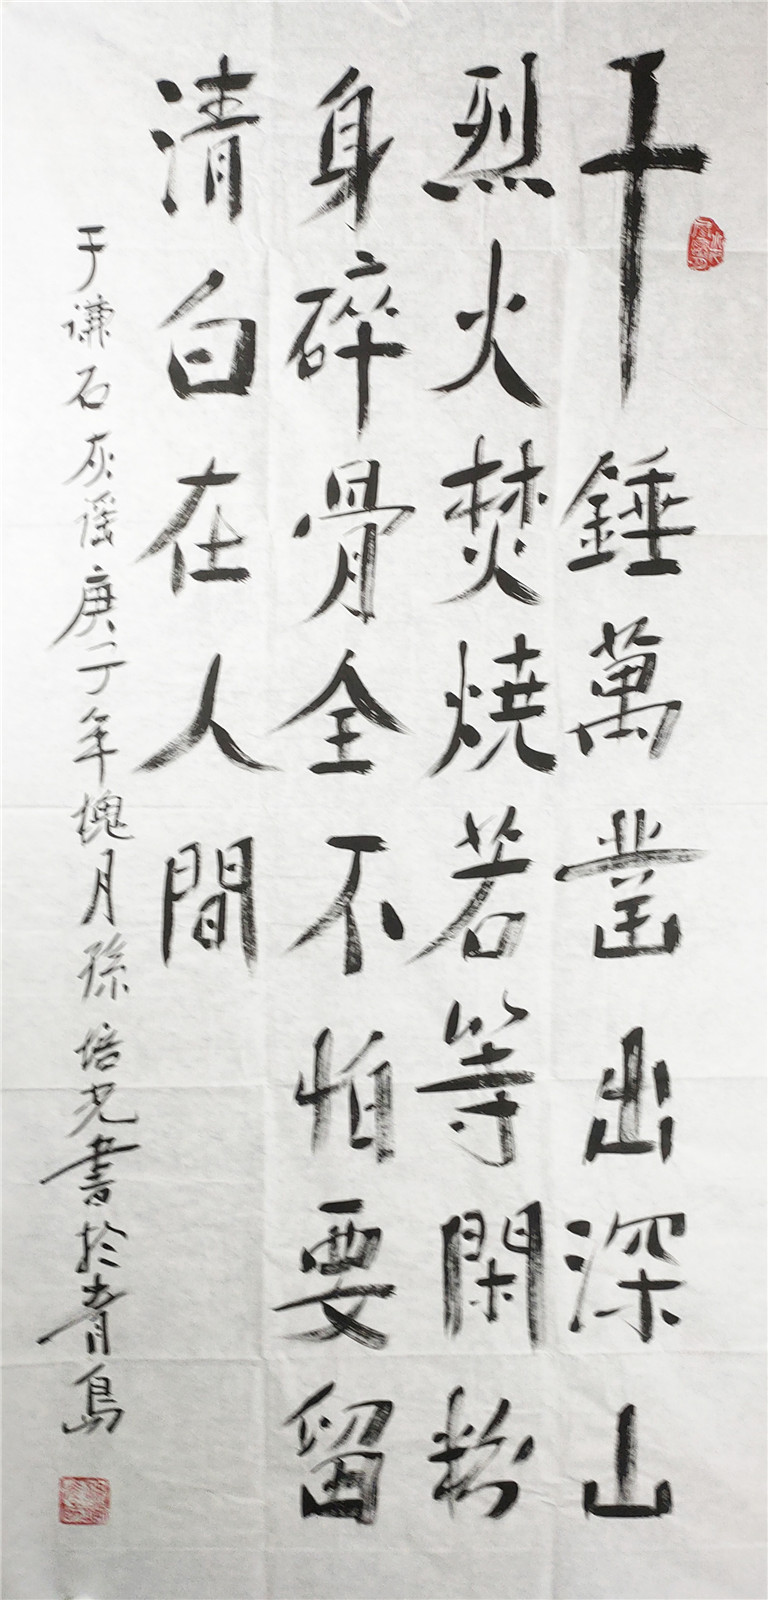 千錘萬凿出深山
烈火焚燒若等閑粉
身碎骨全不怕要留
清白在人間
于谦石灰谣庚子年槐月孫培光書於青島